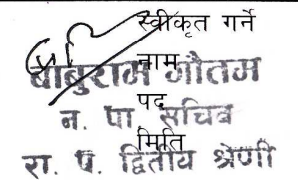 स्वीकृत गर्ने
नाम
बाबुराम गौतम
पद
न. पा. सचिव
मिति
रा. प. द्वितीय श्रेणी